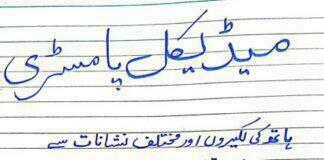 میڈیکل پامسٹری
ہاتھ کی لکیروں اور مختلف نشانات سے